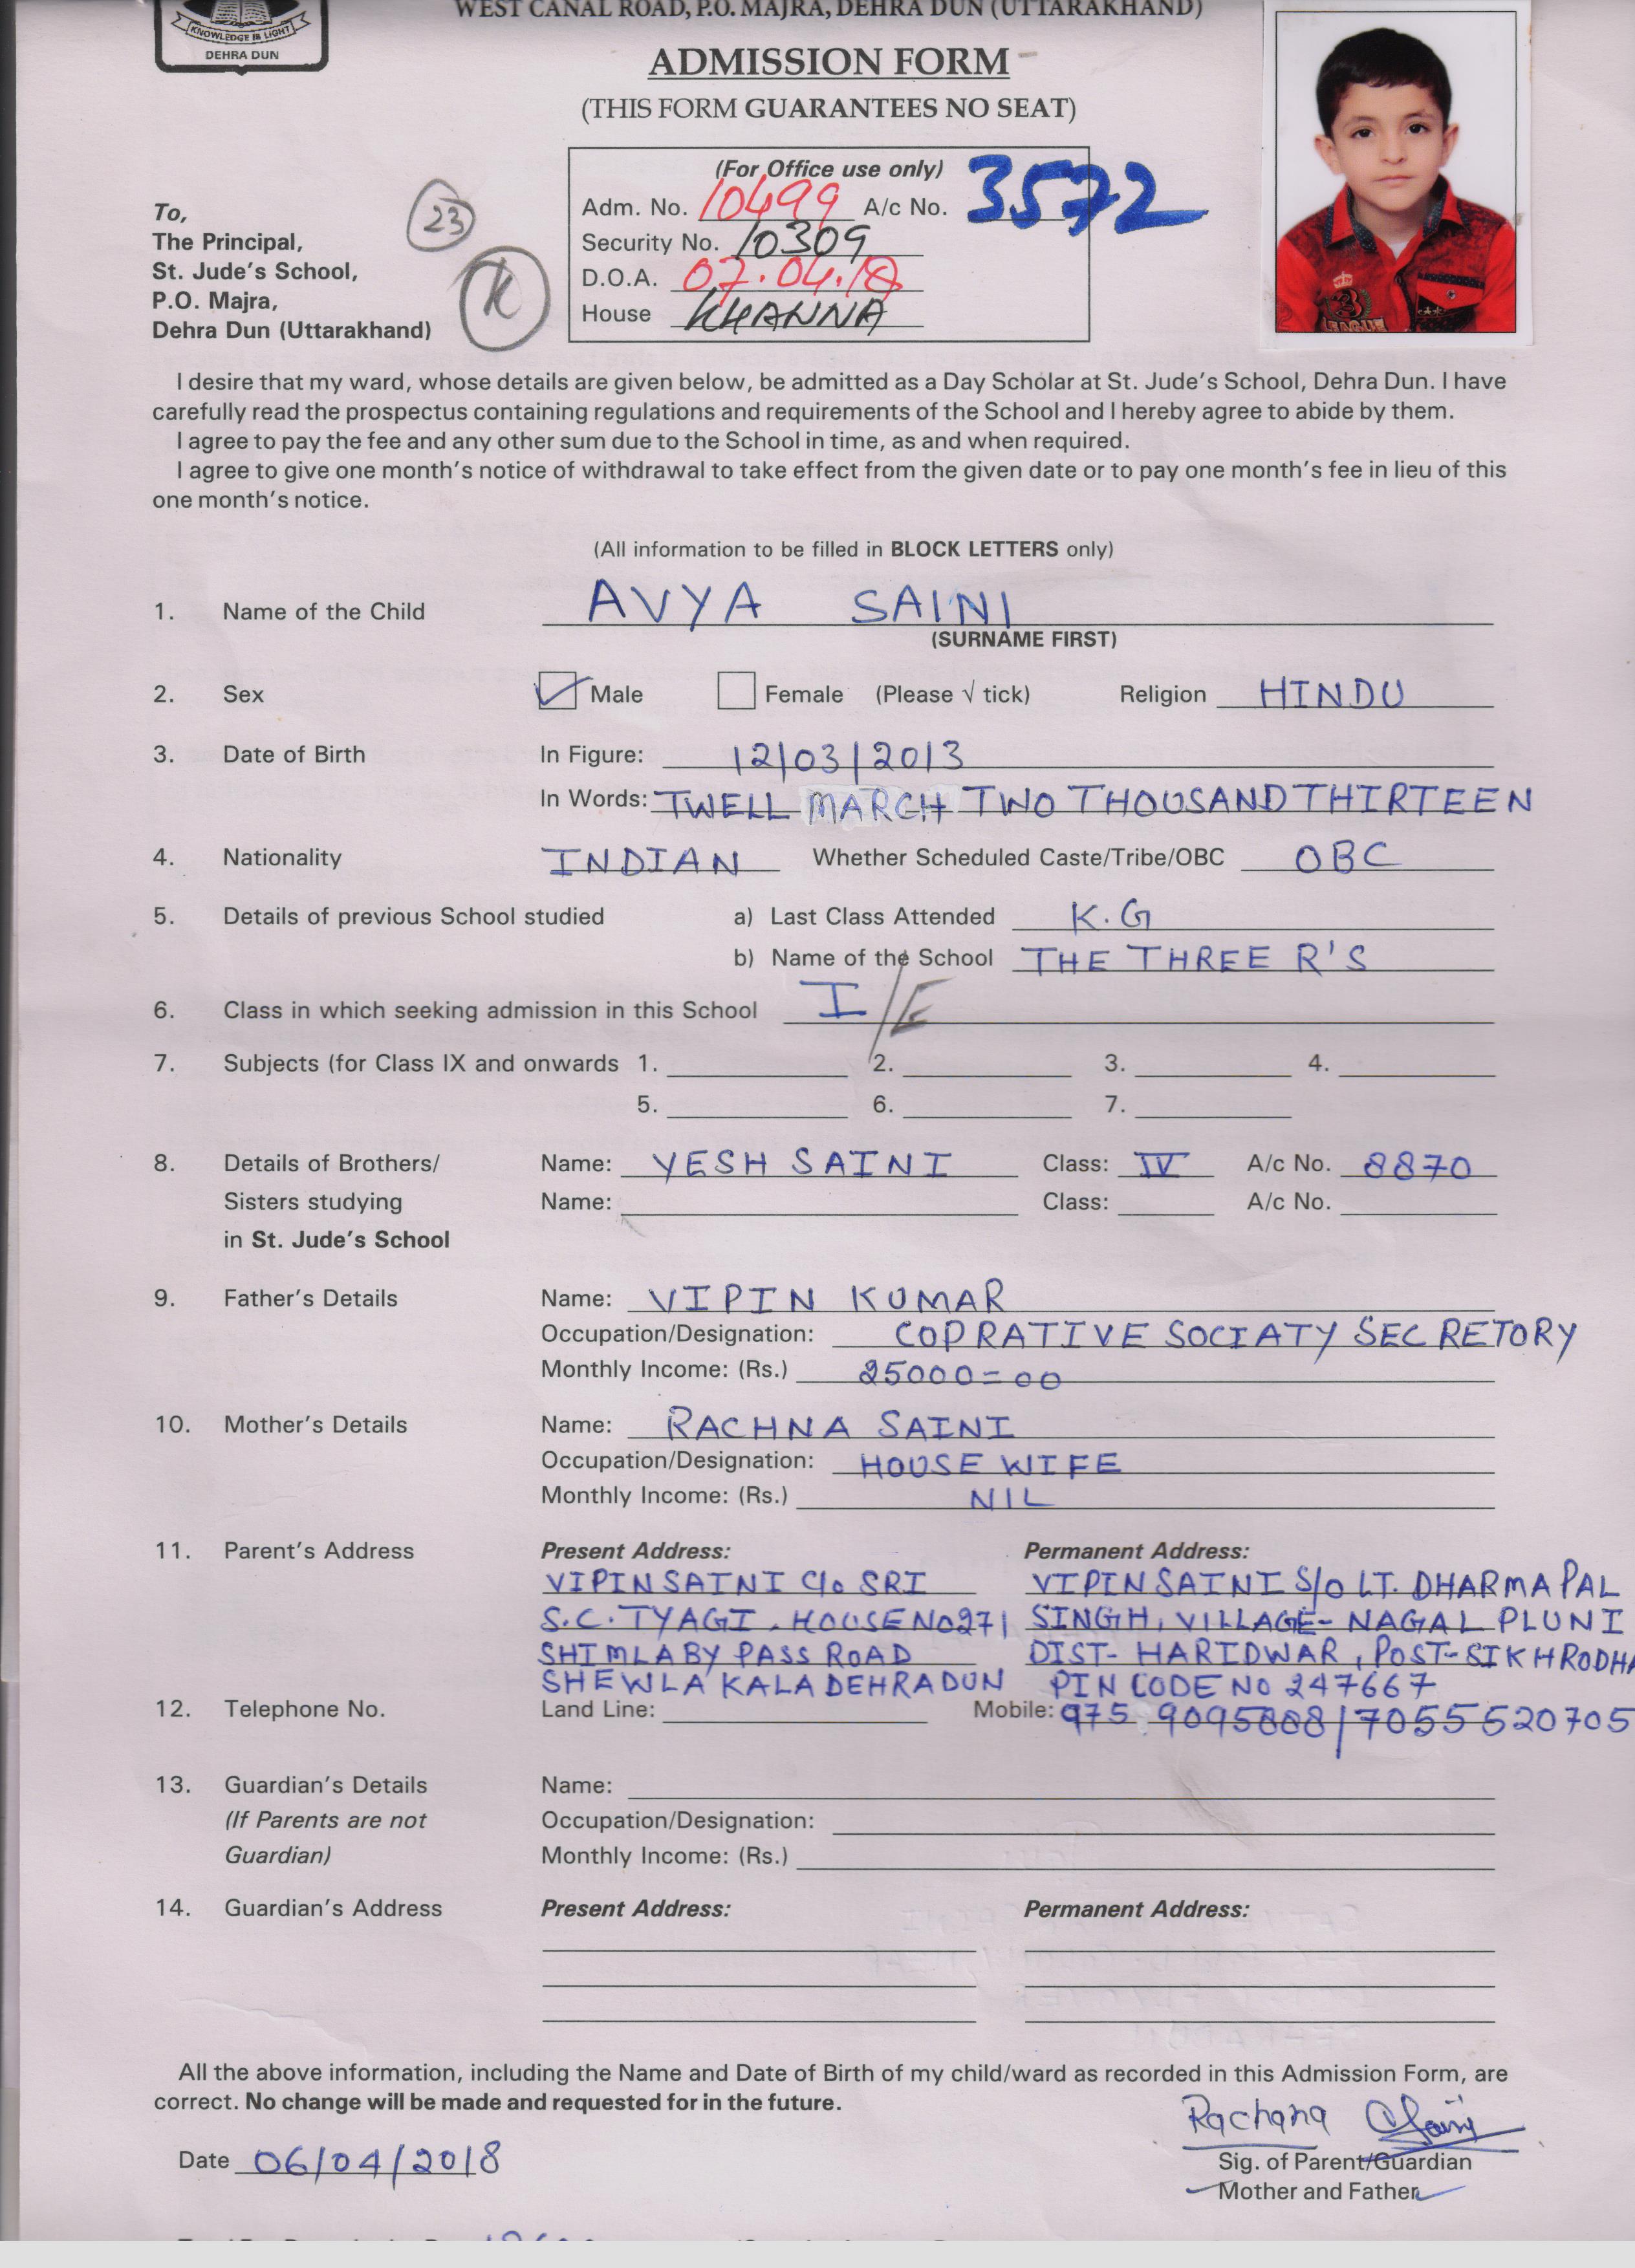 WEST CANAL ROAD, P.O. MAJRA, DEHRA DUN (UTTARAKHAND)
KNOWLEDGE IS LIGHT
DEHRA DUN
ADMISSION FORM
(THIS FORM GUARANTEES NO SEAT)
(For Office use only)
Adm. No. 10499 A/c No. 3572
Security No. 10309
D.O.A. 07.04.18
House KHANNA
23
K
To,
The Principal,
St. Jude's School,
P.O. Majra,
Dehra Dun (Uttarakhand)
I desire that my ward, whose details are given below, be admitted as a Day Scholar at St. Jude's School, Dehra Dun. I have
carefully read the prospectus containing regulations and requirements of the School and I hereby agree to abide by them.
I agree to pay the fee and any other sum due to the School in time, as and when required.
I agree to give one month's notice of withdrawal to take effect from the given date or to pay one month's fee in lieu of this
one month's notice.
(All information to be filled in BLOCK LETTERS only)
1. Name of the Child AVYA SAINI
(SURNAME FIRST)
2. Sex Male Female (Please √ tick) Religion HINDU
3. Date of Birth In Figure: 12/03/2013
In Words: TWELL MARCH TWO THOUSAND THIRTEEN
4. Nationality INDIAN Whether Scheduled Caste/Tribe/OBC OBC
5. Details of previous School studied a) Last Class Attended K.G
b) Name of the School THE THREE R'S
6. Class in which seeking admission in this School I/E
7. Subjects (for Class IX and onwards 1. 2. 3. 4.
5. 6. 7.
8. Details of Brothers/ Name: YESH SAINI Class: IV A/c No. 8870
Sisters studying Name: Class: A/c No.
in St. Jude's School
9. Father's Details Name: VIPIN KUMAR
Occupation/Designation: COPRATIVE SOCIATY SECRETORY
Monthly Income: (Rs.) 25000=00
10. Mother's Details Name: RACHNA SAINI
Occupation/Designation: HOUSE WIFE
Monthly Income: (Rs.) NIL
11. Parent's Address Present Address: Permanent Address:
VIPIN SAINI C/o SRI VIPIN SAINI S/O LT. DHARMAPAL
S.C. TYAGI. HOUSE NO271 SINGH, VILLAGE- NAGAL PLUNI
SHIMLA BY PASS ROAD DIST- HARIDWAR, POST-SIKHRODHA
SHEWLA KALA DEHRADUN PIN CODE NO 247667
12. Telephone No. Land Line: Mobile: 975 9095888/7055520705
13. Guardian's Details Name:
(If Parents are not Occupation/Designation:
Guardian) Monthly Income: (Rs.)
14. Guardian's Address Present Address: Permanent Address:
All the above information, including the Name and Date of Birth of my child/ward as recorded in this Admission Form, are
correct. No change will be made and requested for in the future.
Rachana Saini
Date 06/04/2018 Sig. of Parent/Guardian
Mother and Father